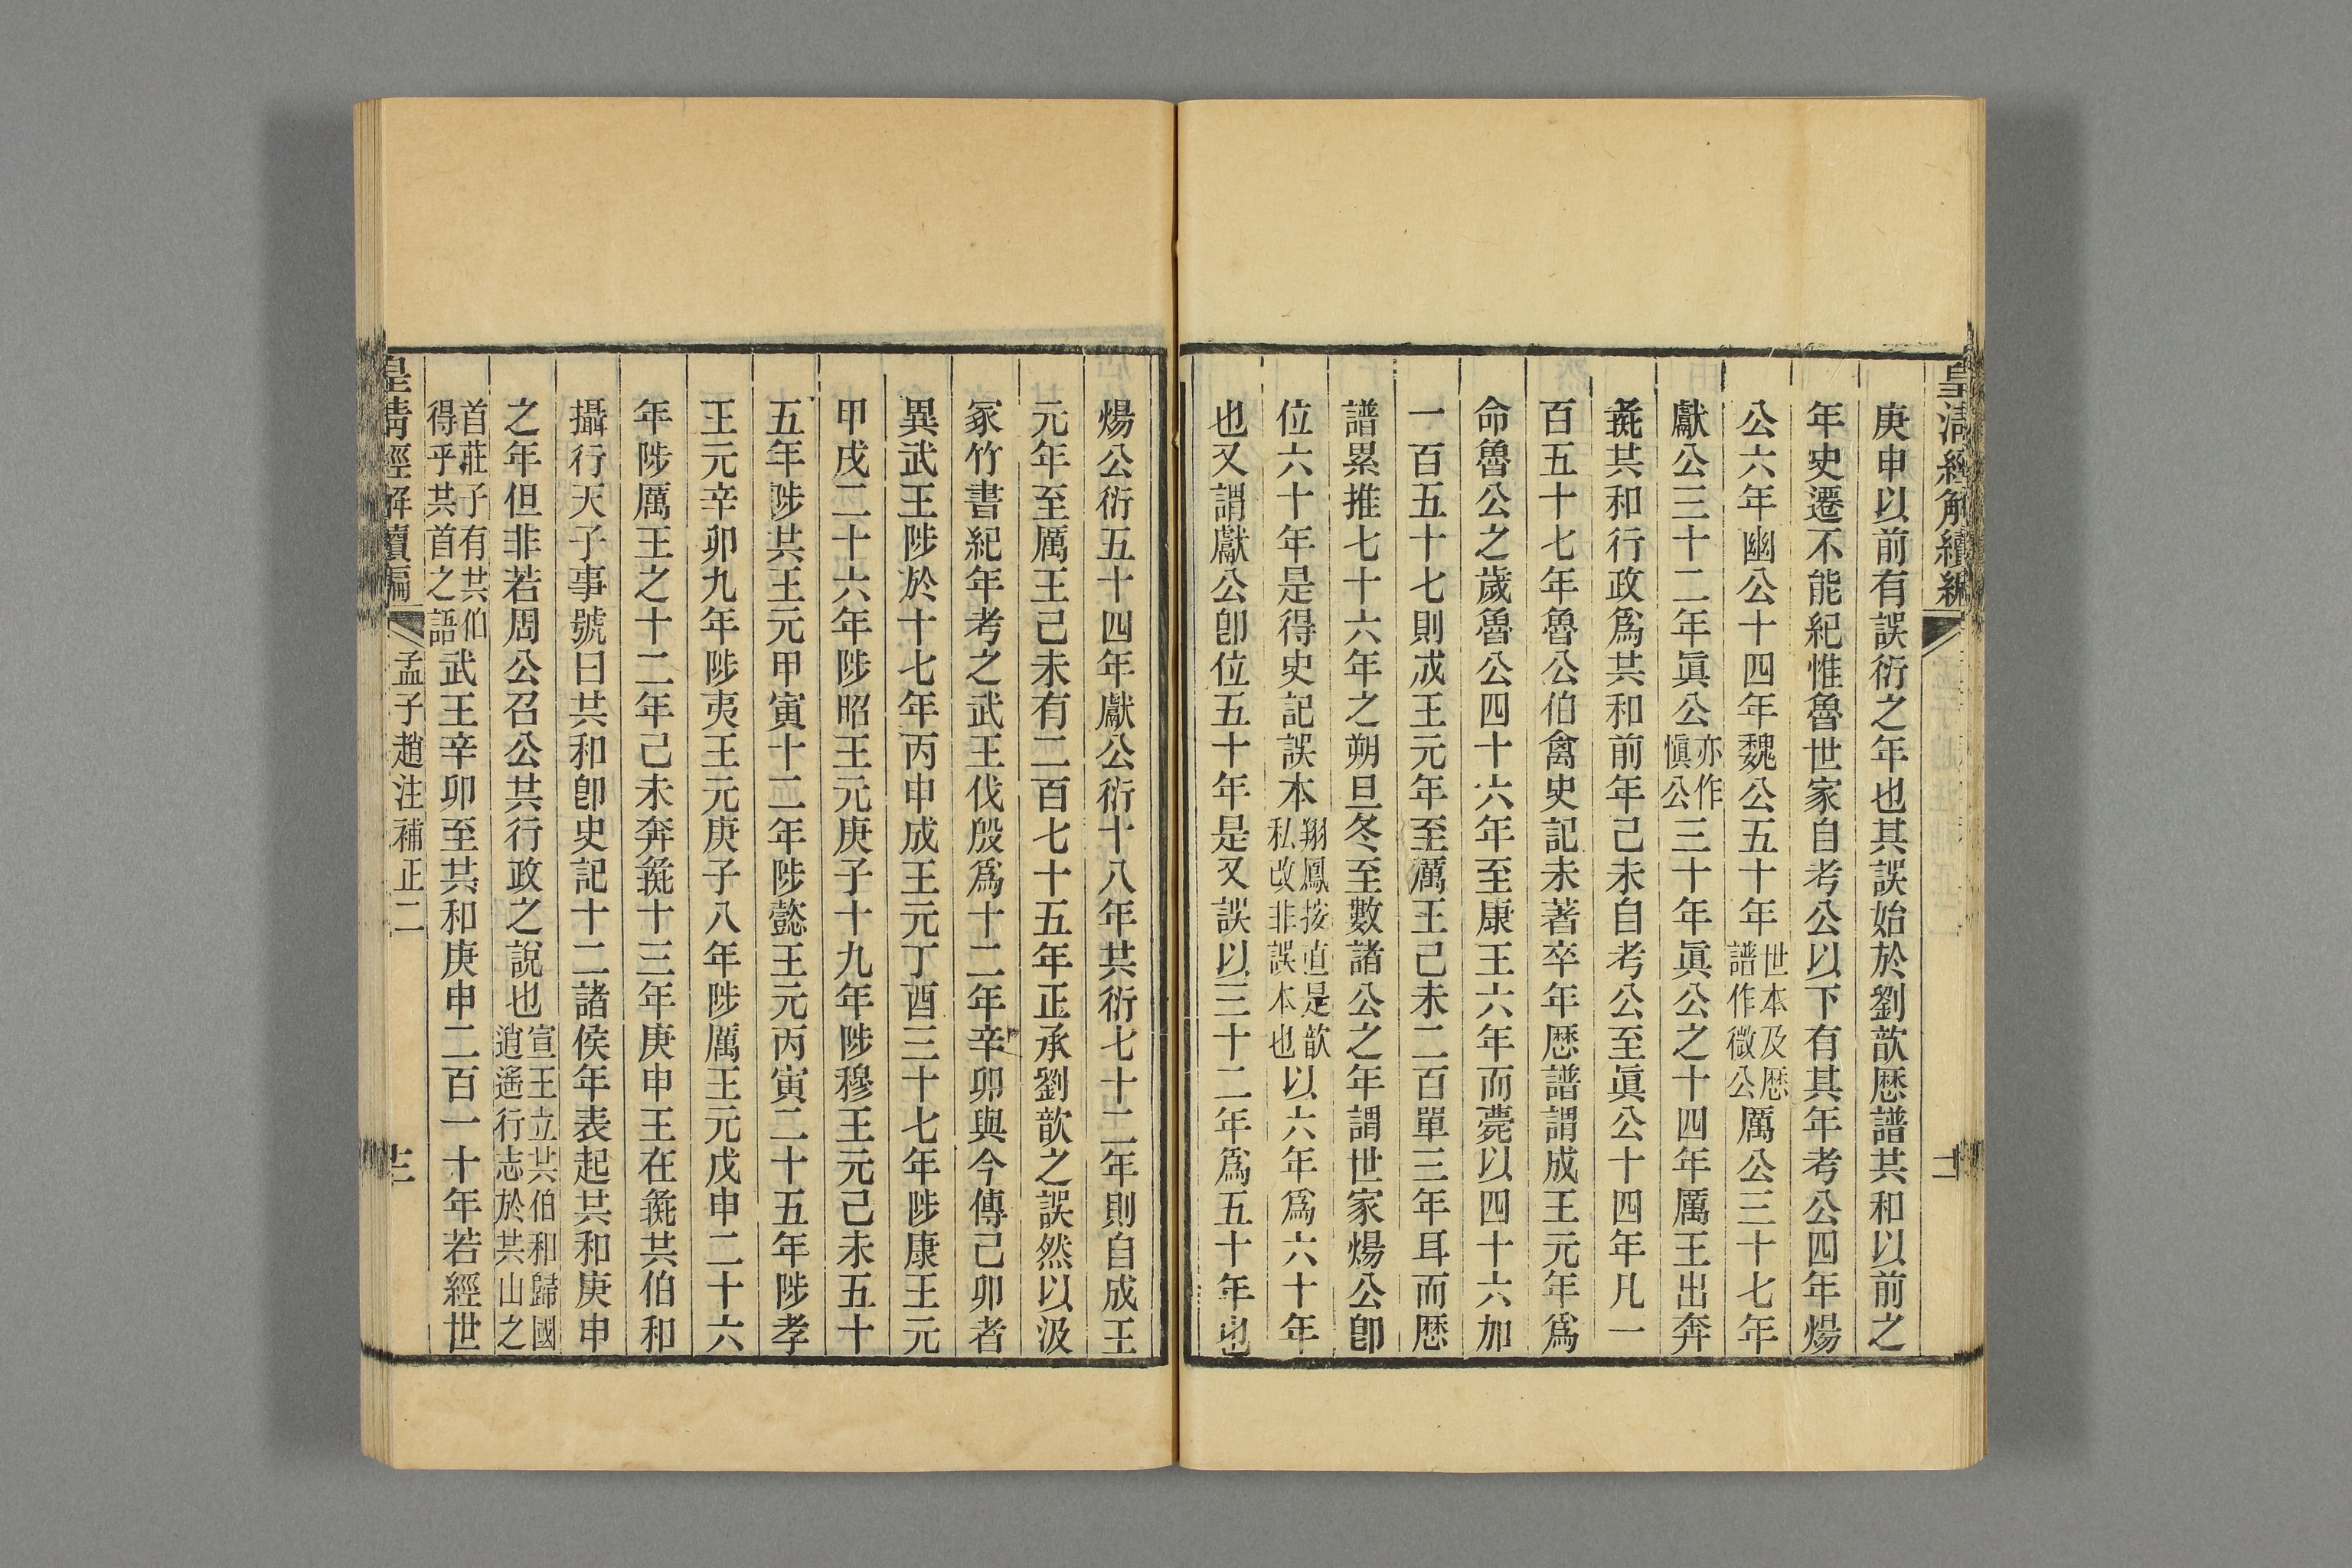 皇清經解續編
庚申以前有誤衍之年也其誤始於劉歆厯譜共和以前之
年史遷不能紀惟魯世家自考公以下有其年考公四年煬
公六年幽公十四年魏公五十年世本及厯譜作微公厲公三十七年
獻公三十二年眞公亦作愼公三十年眞公之十四年厲王出奔
彘共和行政爲共和前年己未自考公至眞公十四年凡一
百五十七年魯公伯禽史記未著卒年厯譜謂成王元年爲
命魯公之歲魯公四十六年至康王六年而薨以四十六加
一百五十七則成王元年至厲王己未二百單三年耳而厯
譜累推七十六年之朔旦冬至數諸公之年謂世家煬公卽
位六十年是得史記誤本翔鳳按直是歆私改非誤本也以六年爲六十年
也又謂獻公卽位五十年是又誤以三十二年爲五十年也
煬公衍五十四年獻公衍十八年共衍七十二年則自成王
元年至厲王己未有二百七十五年正承劉歆之誤然以汲
冢竹書紀年考之武王伐殷爲十二年辛卯與今傳己卯者
異武王陟於十七年丙申成王元丁酉三十七年陟康王元
甲戌二十六年陟昭王元庚子十九年陟穆王元己未五十
五年陟共王元甲寅十二年陟懿王元丙寅二十五年陟孝
王元辛卯九年陟夷王元庚子八年陟厲王元戊申二十六
年陟厲王之十二年己未奔彘十三年庚申王在彘共伯和
攝行天子事號曰共和卽史記十二諸侯年表起共和庚申
之年但非若周公召公共行政之說也宣王立共伯和歸國逍遙行志於共山之
首莊子有共伯得乎共首之語武王辛卯至共和庚申二百一十年若經世
皇清經解續編
孟子趙注補正二